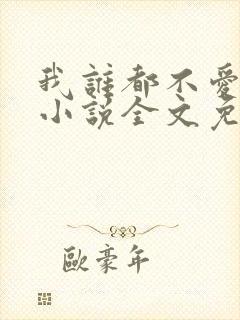 我誰都不愛
小說全文免
歐豪年